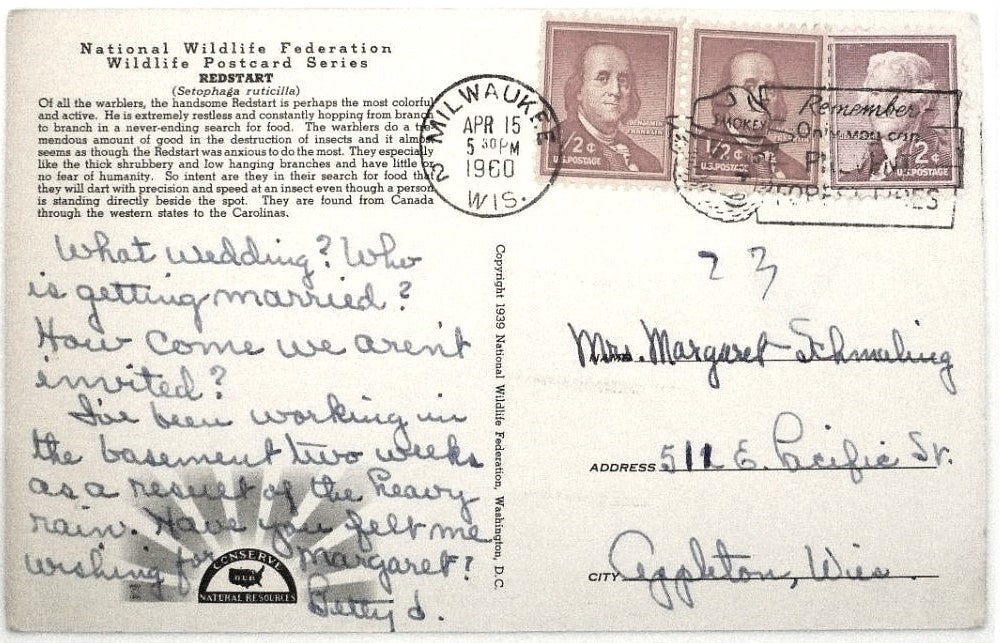 National Wildlife Federation
Wildlife Postcard Series
REDSTART
(Setophaga ruticilla)
Of all the warblers, the handsome Redstart is perhaps the most colorful
and active. He is extremely restless and constantly hopping from branch
to branch in a never-ending search for food. The warblers do a tre-
mendous amount of good in the destruction of insects and it almost
seems as though the Redstart was anxious to do the most. They especially
like the thick shrubbery and low hanging branches and have little or
no fear of humanity. So intent are they in their search for food that
they will dart with precision and speed at an insect even though a person
is standing directly beside the spot. They are found from Canada
through the western states to the Carolinas.
What wedding? Who
is getting married?
How come we aren't
invited?
I've been working in
the basement two weeks
as a result of the heavy
rain. Have you felt me
wishing for Margaret?
Betty J.
CONSERVE
OUR
NATURAL RESOURCES
Copyright 1939 National Wildlife Federation, Washington, D.C.
MILWAUKEE
2
APR 15
5 30 PM
1960
WIS.
BENJAMIN
FRANKLIN
1/2¢
U.S.POSTAGE
1/2¢
U.S.POSTAGE
1/2¢
U.S.POSTAGE
SMOKEY
Remember
Only you can
PREVENT
FOREST FIRES
23
NAME Mrs. Margaret Schmaling
ADDRESS 511 E. Pacific St.
CITY Appleton, Wisc.